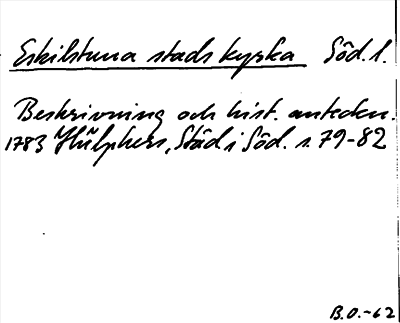 Eskilstuna stads kyrka Söd. l.
Beskrivning och hist. anteckn.
1783 Hülphers, Städ i Söd. s. 79-82
B.O.-62